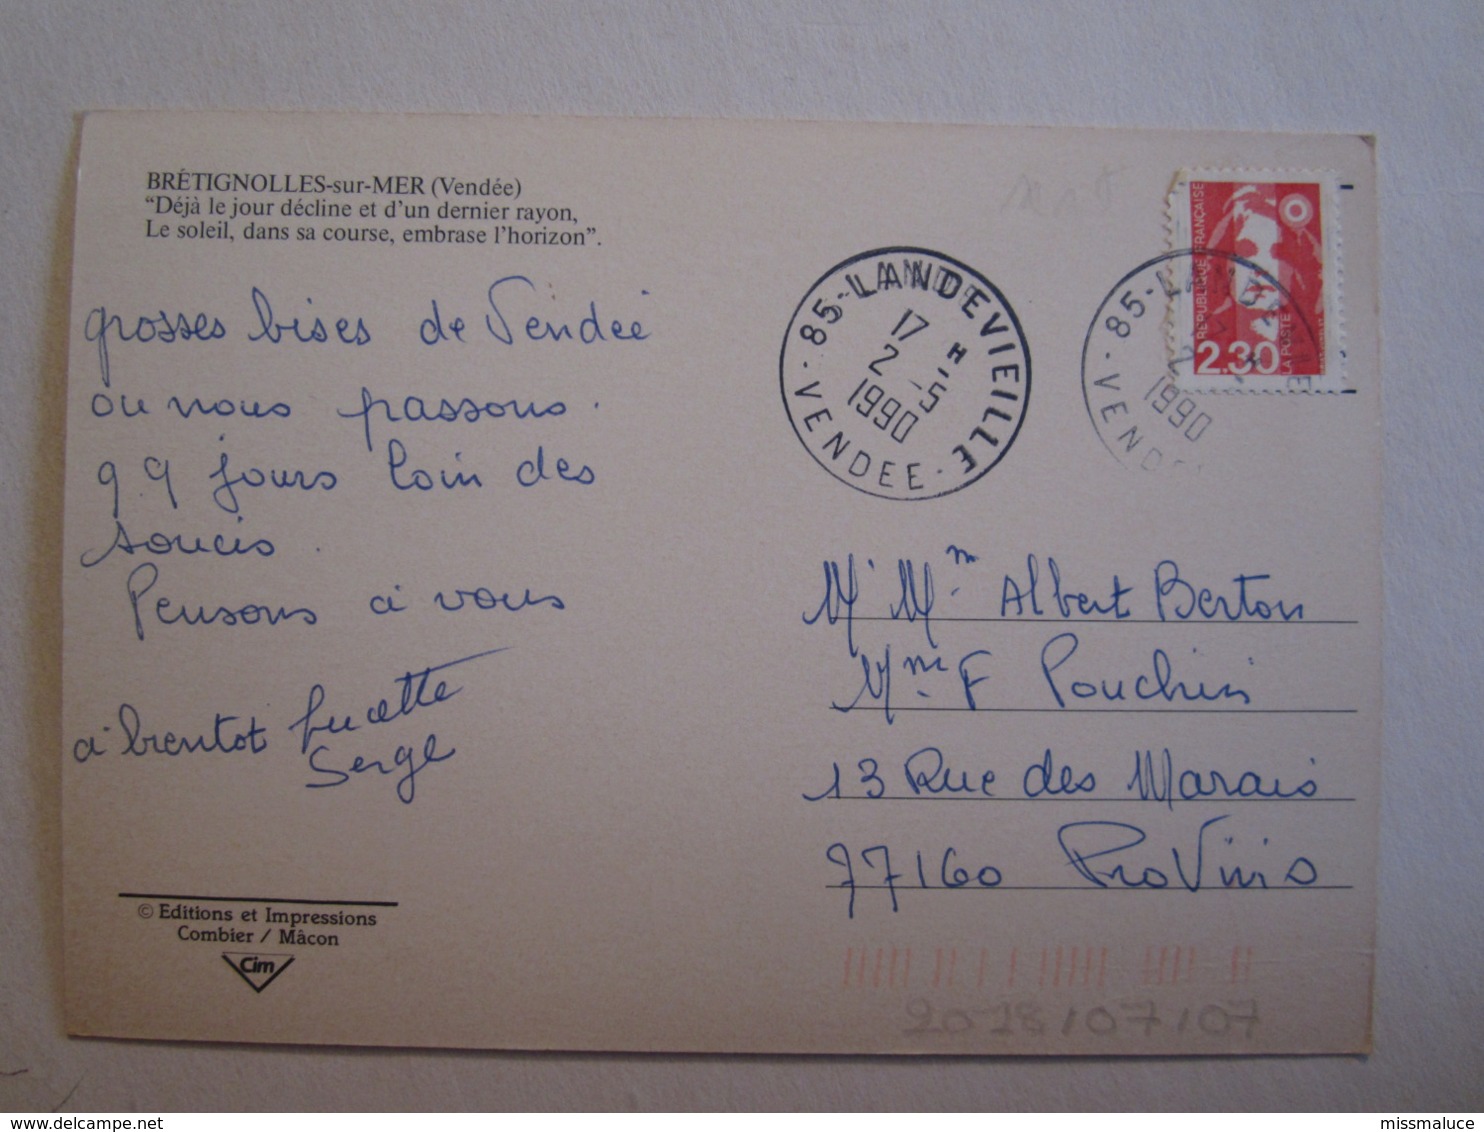 BRÉTIGNOLLES-sur-MER (Vendée)
"Déjà le jour décline et d'un dernier rayon,
Le soleil, dans sa course, embrase l'horizon".
grosses bises de Vendée
ou nous passons
q q jours loin des
soucis.
Pensons à vous
à bientot Lucette
Serge
© Editions et Impressions
Combier / Mâcon
Cim
85-LANDEVIEILLE
17 H
2 -5
1990
VENDEE
REPUBLIQUE FRANÇAISE
2.30
LA POSTE
85-LANDEVIEILLE
1990
VENDEE
Mr Mme Albert Berton
Mme F Pouchin
13 Rue des Marais
77160 ProVins
2018/07/07
missmaluce